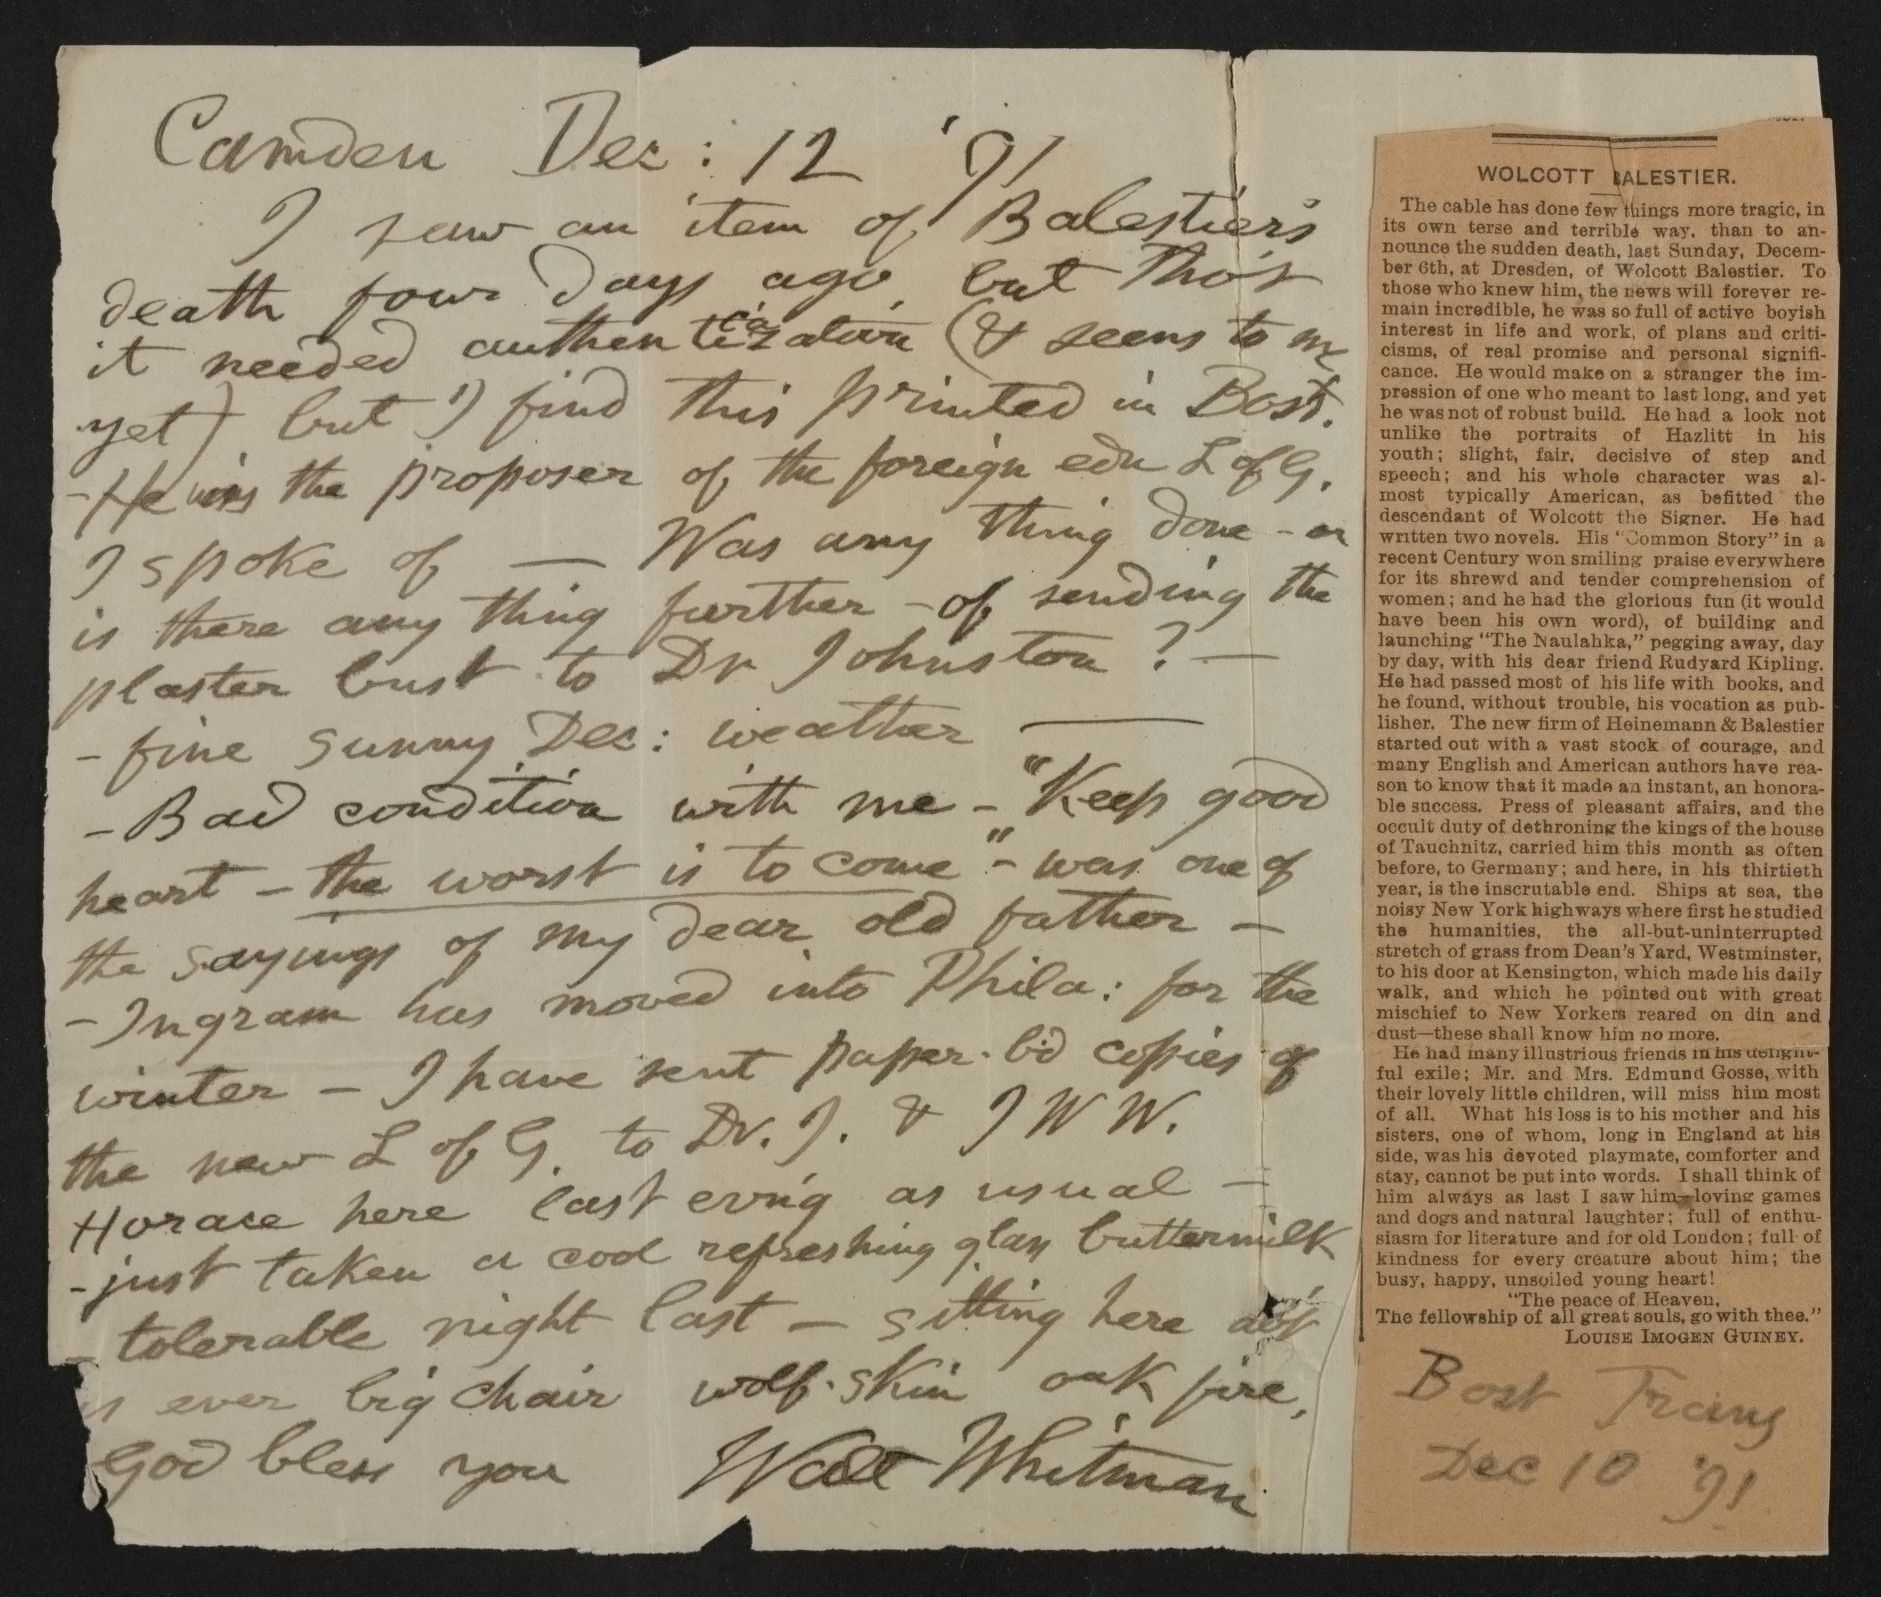 Camden Dec: 12 '91
I saw an item of Balestier's
death four days ago but tho't
it needed authentication (& seems to me
yet) but I find this printed in Bost.
- He was the proposer of the foreign edn L of G.
I spoke of — Was any thing done - or
is there any thing further - of sending the
plaster bust to Dr Johnston? —
- fine sunny Dec: weather —
- Bad condition with me - "Keep good
heart - the worst is to come" - was one of
the sayings of my dear old father —
- Ingram has moved into Phila: for the
winter — I have sent paper-b'd copies of
the new L of G. to Dr. J. & J W W.
Horace here last evn'g as usual —
- just taken a cool refreshing glass buttermilk
- tolerable night last — sitting here
ever big chair wolf-skin oak fire,
God bless you Walt Whitman
WOLCOTT BALESTIER.
The cable has done few things more tragic, in
its own terse and terrible way, than to an-
nounce the sudden death, last Sunday, Decem-
ber 6th, at Dresden, of Wolcott Balestier. To
those who knew him, the news will forever re-
main incredible, he was so full of active boyish
interest in life and work, of plans and criti-
cisms, of real promise and personal signifi-
cance. He would make on a stranger the im-
pression of one who meant to last long, and yet
he was not of robust build. He had a look not
unlike the portraits of Hazlitt in his
youth; slight, fair, decisive of step and
speech; and his whole character was al-
most typically American, as befitted the
descendant of Wolcott the Signer. He had
written two novels. His "Common Story" in a
recent Century won smiling praise everywhere
for its shrewd and tender comprehension of
women; and he had the glorious fun (it would
have been his own word), of building and
launching "The Naulahka," pegging away, day
by day, with his dear friend Rudyard Kipling.
He had passed most of his life with books, and
he found, without trouble, his vocation as pub-
lisher. The new firm of Heinemann & Balestier
started out with a vast stock of courage, and
many English and American authors have rea-
son to know that it made an instant, an honora-
ble success. Press of pleasant affairs, and the
occult duty of dethroning the kings of the house
of Tauchnitz, carried him this month as often
before, to Germany; and here, in his thirtieth
year, is the inscrutable end. Ships at sea, the
noisy New York highways where first he studied
the humanities, the all-but-uninterrupted
stretch of grass from Dean's Yard, Westminster,
to his door at Kensington, which made his daily
walk, and which he pointed out with great
mischief to New Yorkers reared on din and
dust—these shall know him no more.
He had many illustrious friends in his delight-
ful exile; Mr. and Mrs. Edmund Gosse, with
their lovely little children, will miss him most
of all. What his loss is to his mother and his
sisters, one of whom, long in England at his
side, was his devoted playmate, comforter and
stay, cannot be put into words. I shall think of
him always as last I saw him—loving games
and dogs and natural laughter; full of enthu-
siasm for literature and for old London; full of
kindness for every creature about him; the
busy, happy, unsoiled young heart!
"The peace of Heaven,
The fellowship of all great souls, go with thee."
LOUISE IMOGEN GUINEY.
Bost Trans
Dec 10 '91